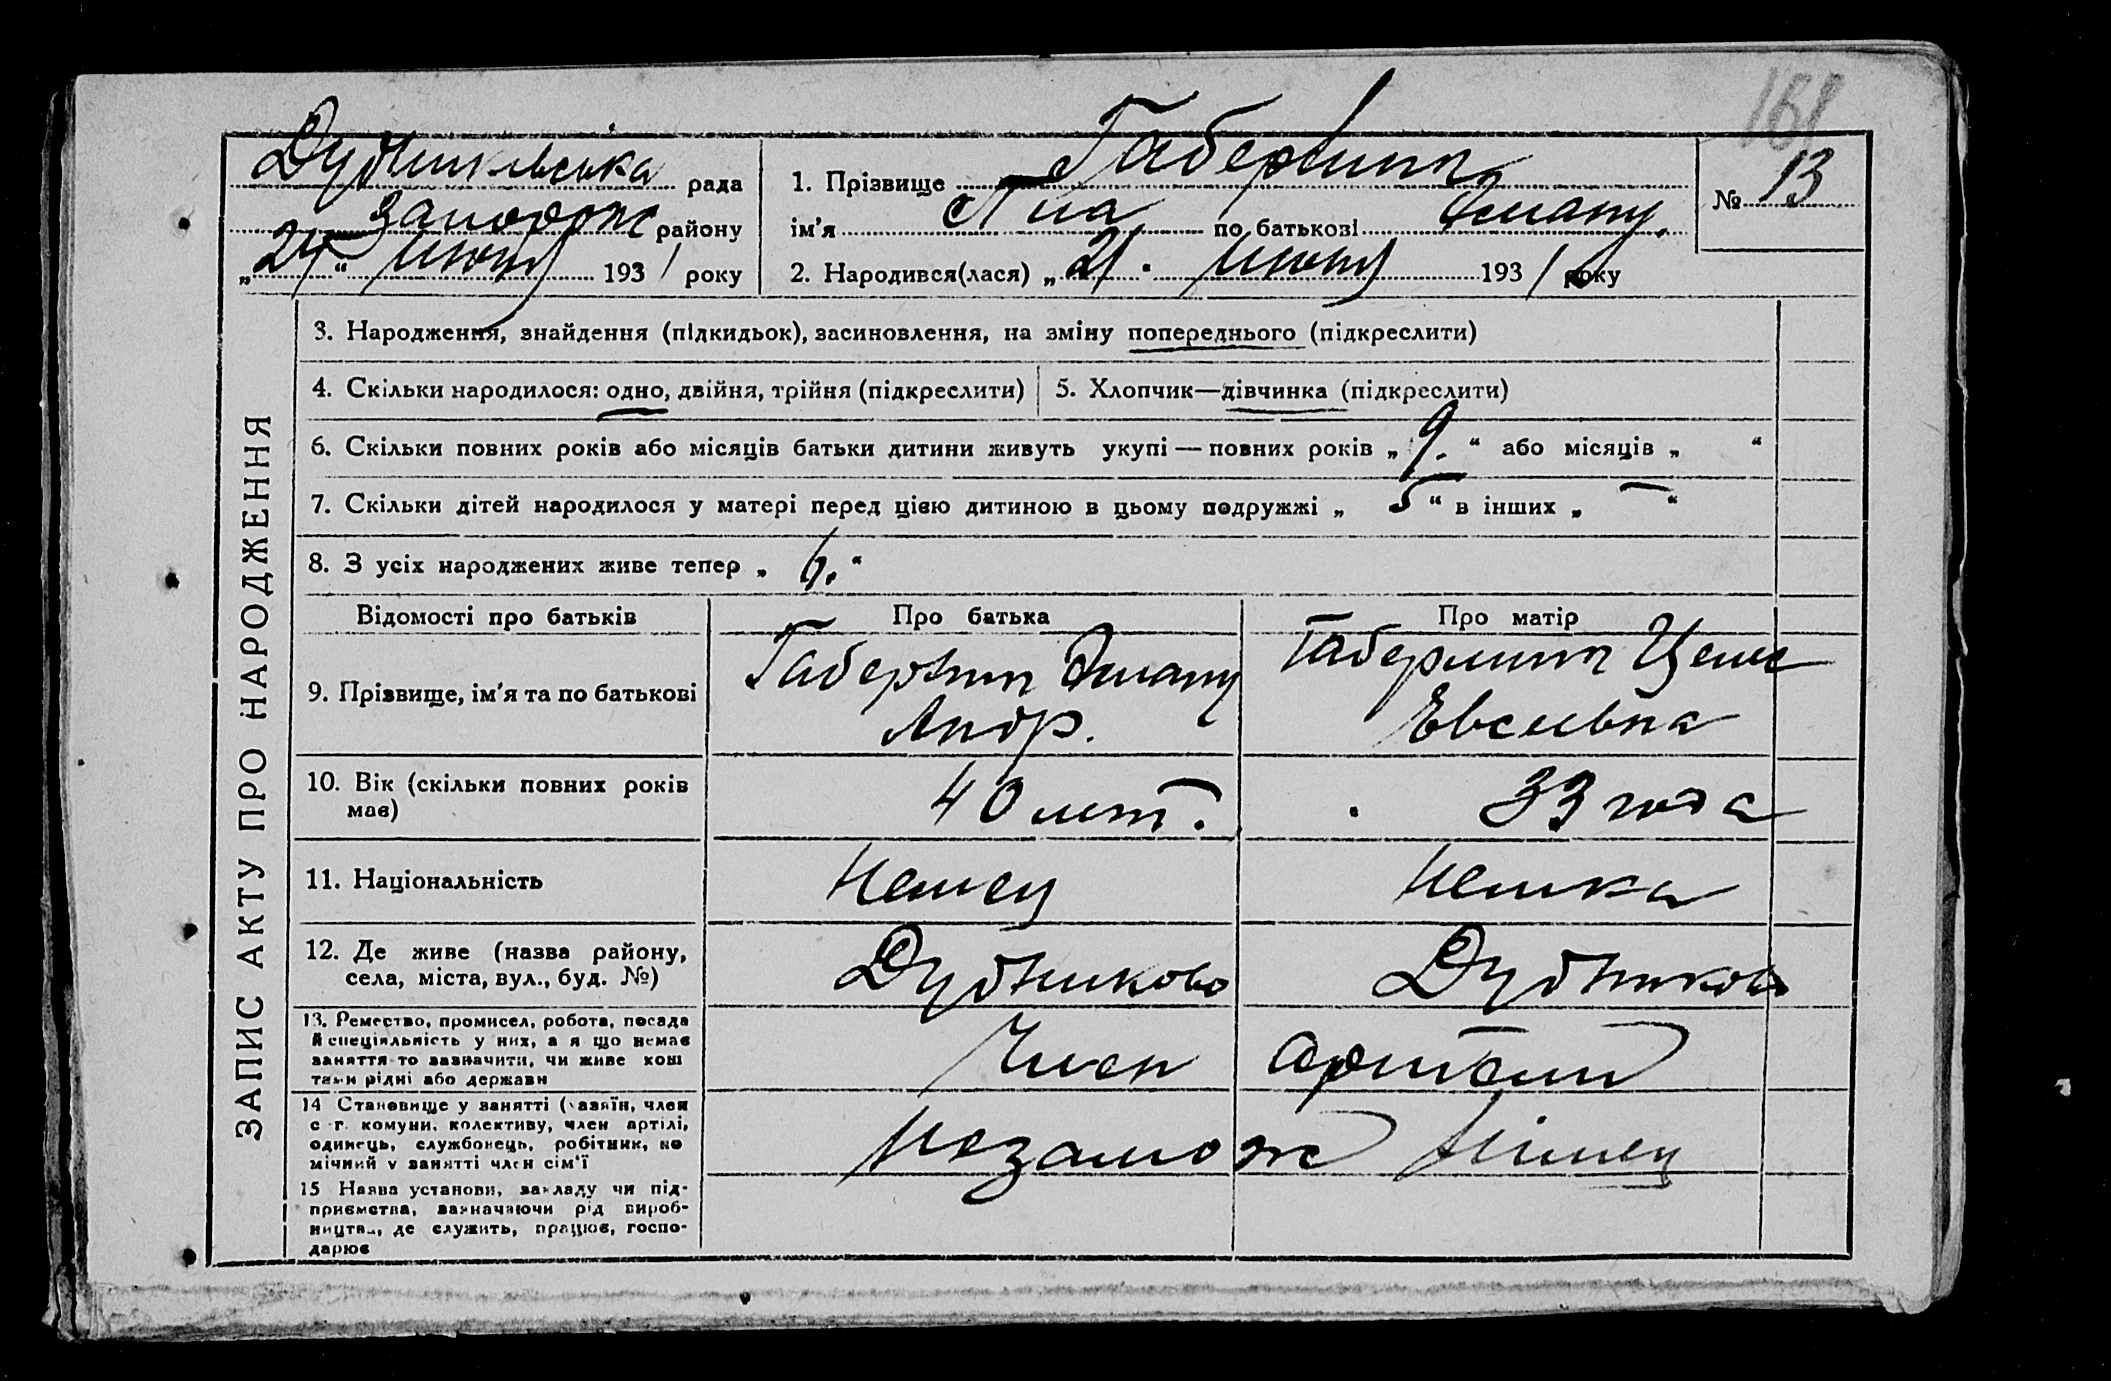 161
Дубниковська рада
Запорож району
„24“ июня 1931 року
1. Прізвище
ім'я по батькові
2. Народився(лася) „21. июня 1931 року
№ 13
ЗАПИС АКТУ ПРО НАРОДЖЕННЯ
3. Народження, знайдення (підкидьок), засиновлення, на зміну попереднього (підкреслити)
4. Скільки народилося: одно, двійня, трійня (підкреслити)
5. Хлопчик—дівчинка (підкреслити)
6. Скільки повних років або місяців батьки дитини живуть укупі — повних років „9.“ або місяців „ “
7. Скільки дітей народилося у матері перед цією дитиною в цьому подружжі „5“ в інших „—“
8. З усіх народжених живе тепер „6.“
Відомості про батьків Про батька Про матір
9. Прізвище, ім'я та по батькові
Андр. Евсеевна
10. Вік (скільки повних років 40 лет. 33 года
має)
11. Національність Немец Немка
12. Де живе (назва району, Дубниково Дубниково
села, міста, вул., буд. №)
13. Ремество, промисел, робота, посада
й спеціяльність у них, а я що немає
заняття то зазначити, чи живе кош
тами рідні або держави
Член артели
14 Становище у занятті (хазяїн, член
с г. комуни, колективу, член артілі,
одинець, службовець, робітник, по
мічний у занятті член сім'ї
Незамож німец
15 Назва установи, закладу чи під-
приємства, зазначаючи рід вироб-
ництва, де служить, працює, госпо-
дарює